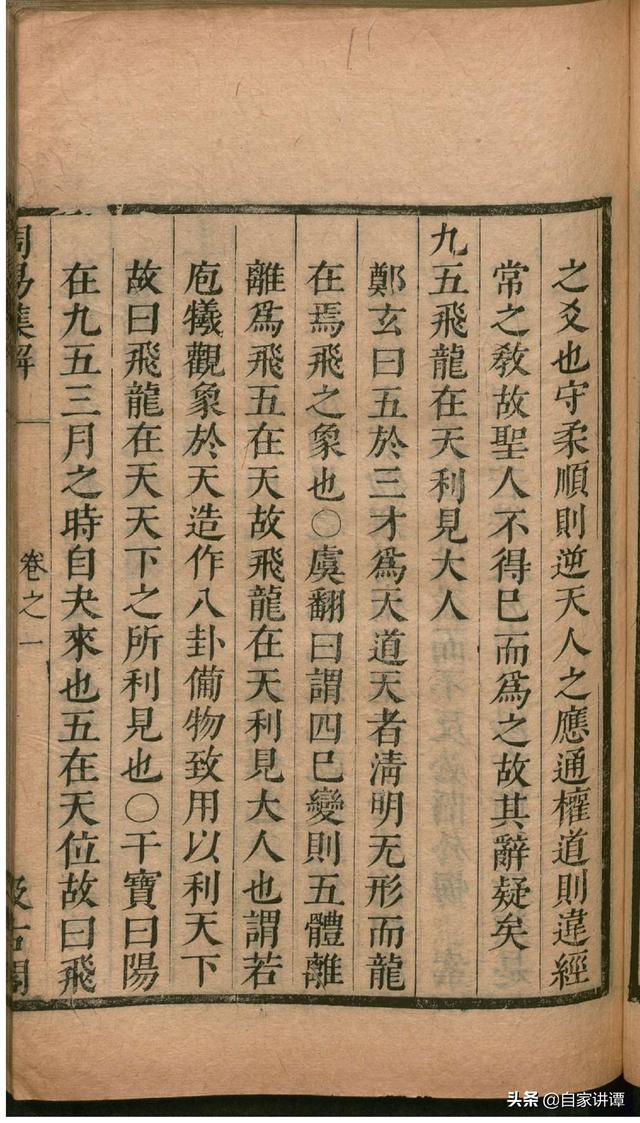 之爻也守柔順則逆天人之應通權道則違經
常之敎故聖人不得巳而爲之故其辭疑矣
九五飛龍在天利見大人
鄭玄曰五於三才爲天道天者淸明无形而龍
在焉飛之象也○虞翻曰謂四巳變則五體離
離爲飛五在天故飛龍在天利見大人也謂若
庖犧觀象於天造作八卦備物致用以利天下
故曰飛龍在天天下之所利見也○干寶曰陽
在九五三月之時自夬來也五在天位故曰飛
周易集解 卷之一 汲古閣
头条 @自家讲谭